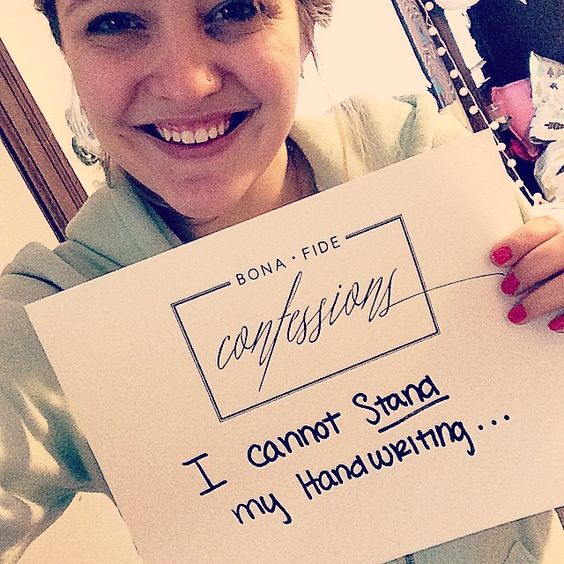 BONA · FIDE
confessions
I cannot Stand
my Handwriting...